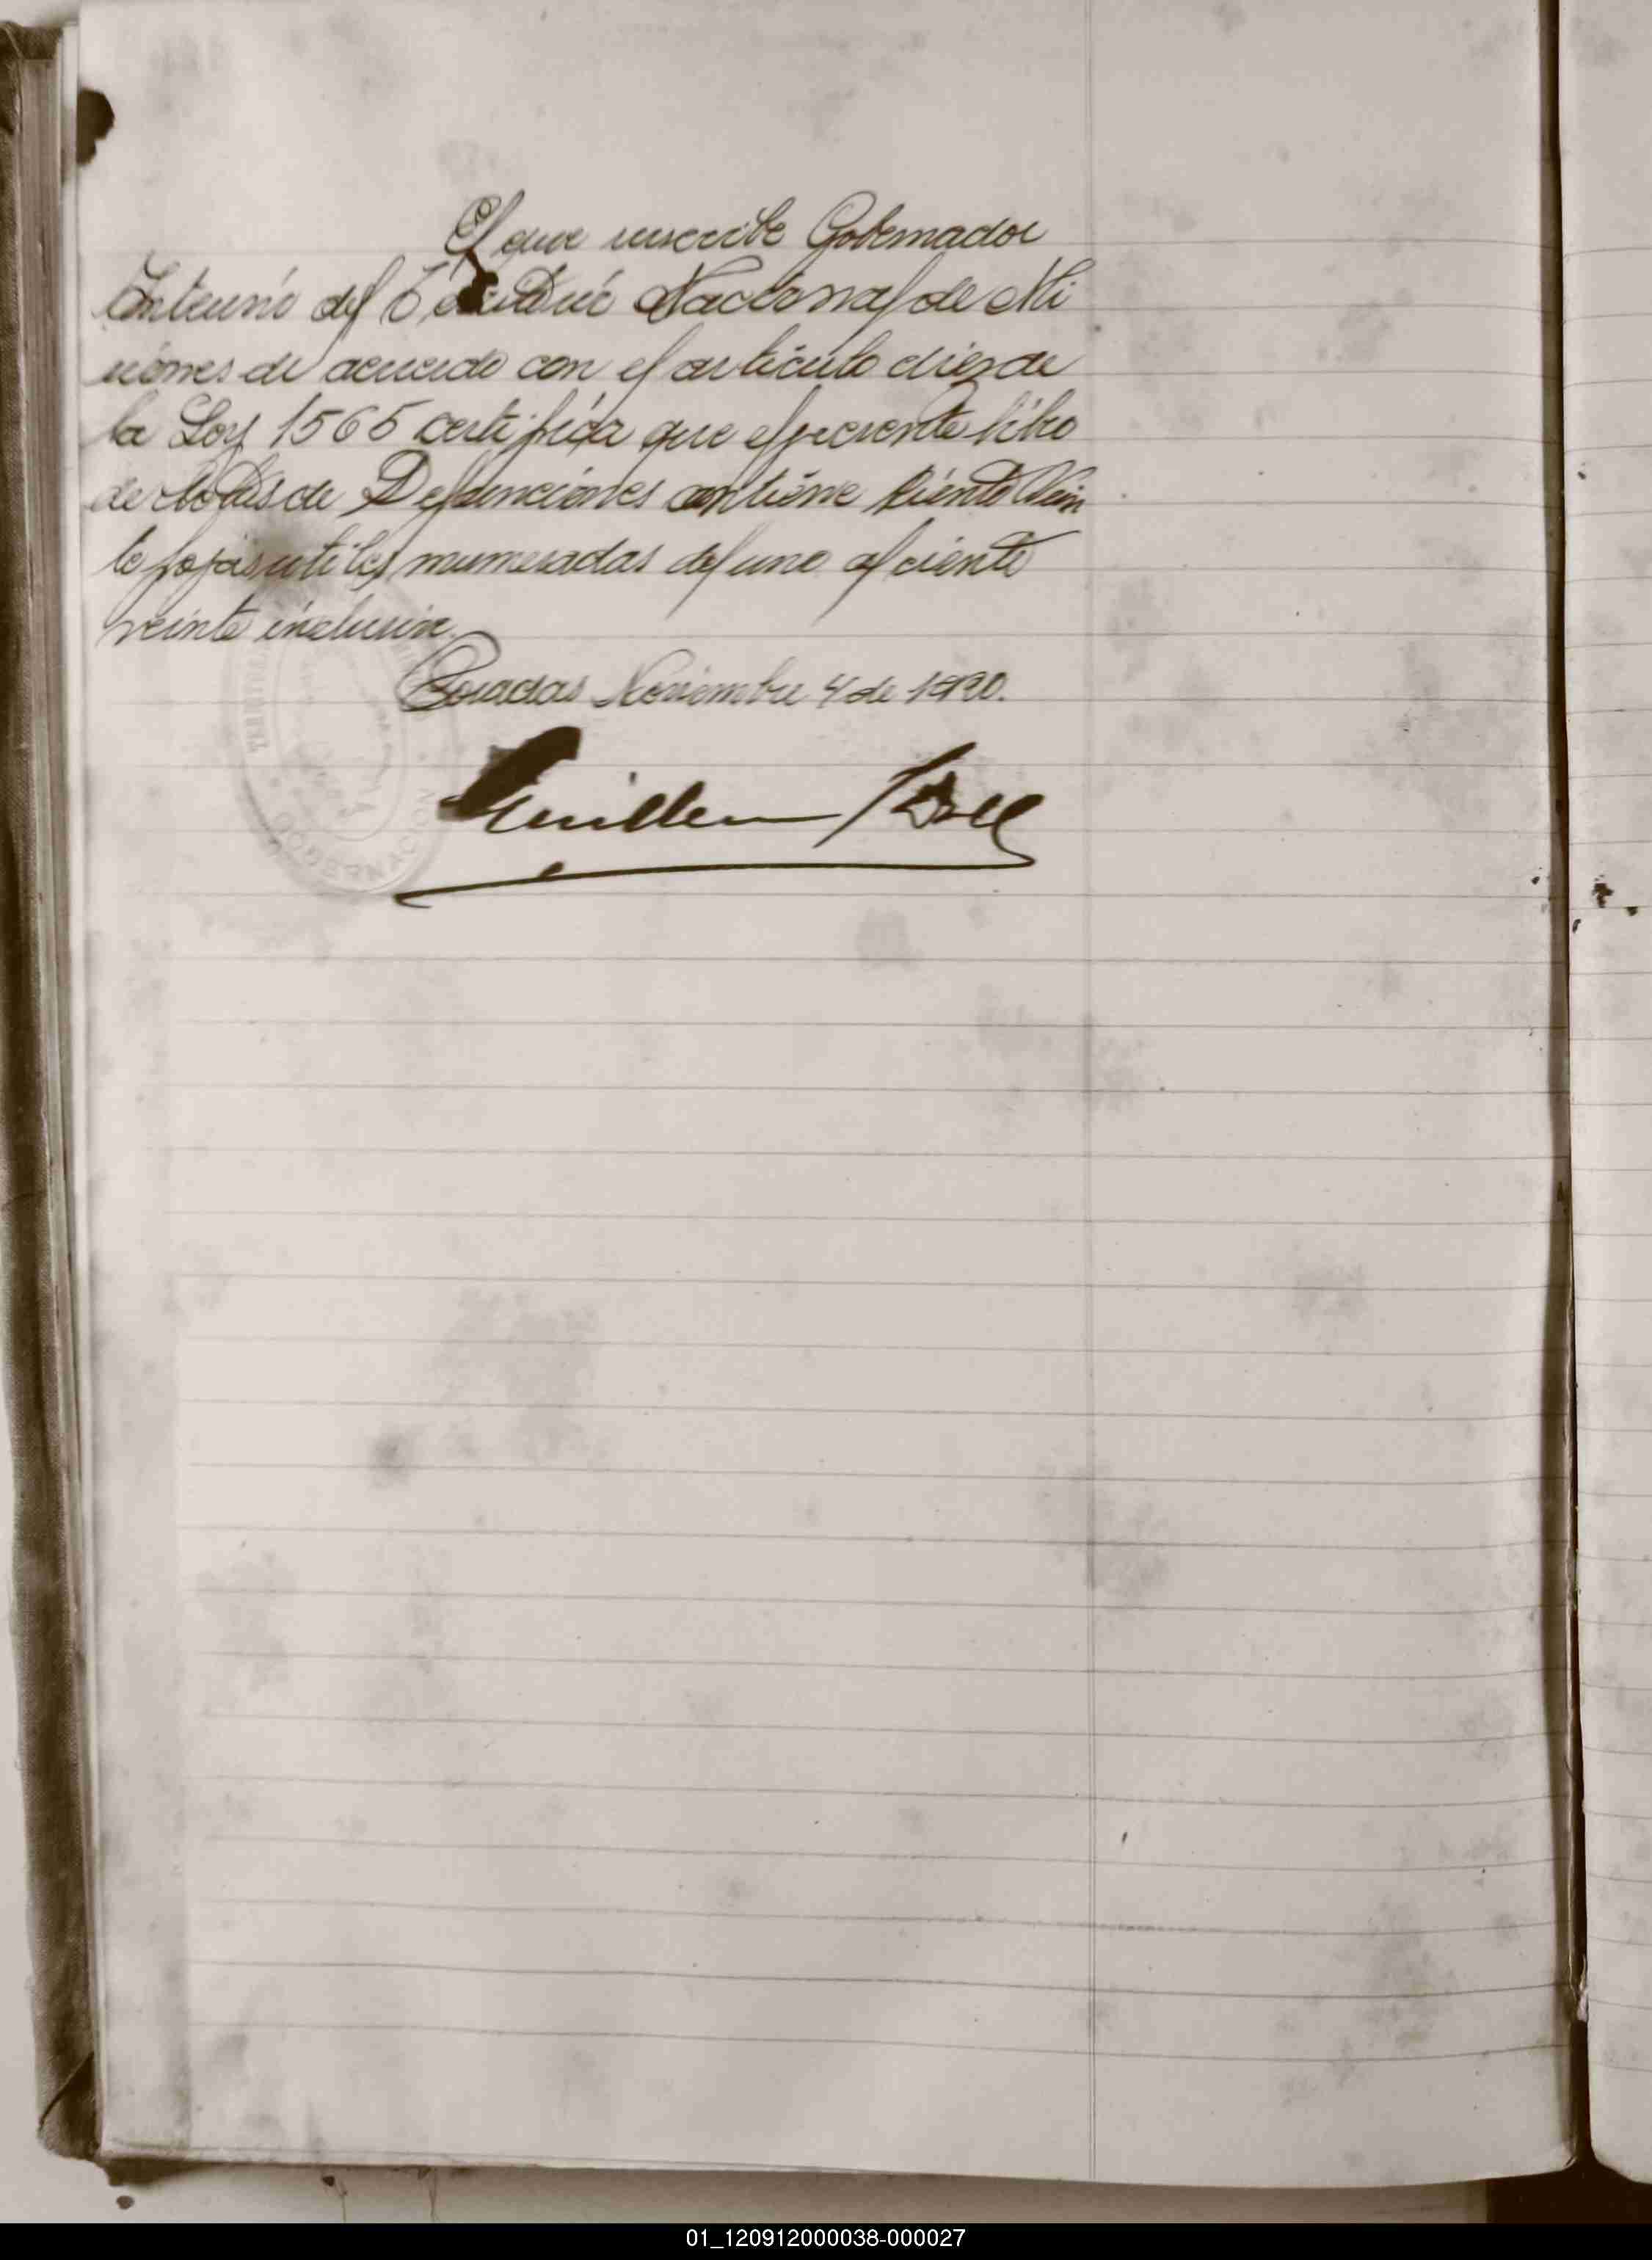 El que suscribe Gobernador
Interino del Territorio Nacional de Mi
siones de acuerdo con el articulo diez de
la Ley 1565 certifica que el presente libro
de Actas de Defunciones contiene ciento Vein
te fojas utiles numeradas del uno al ciento
veinte inclusive.
Posadas Noviembre 4 de 1920.
Guillermo
GOBERNACION
01_120912000038-000027